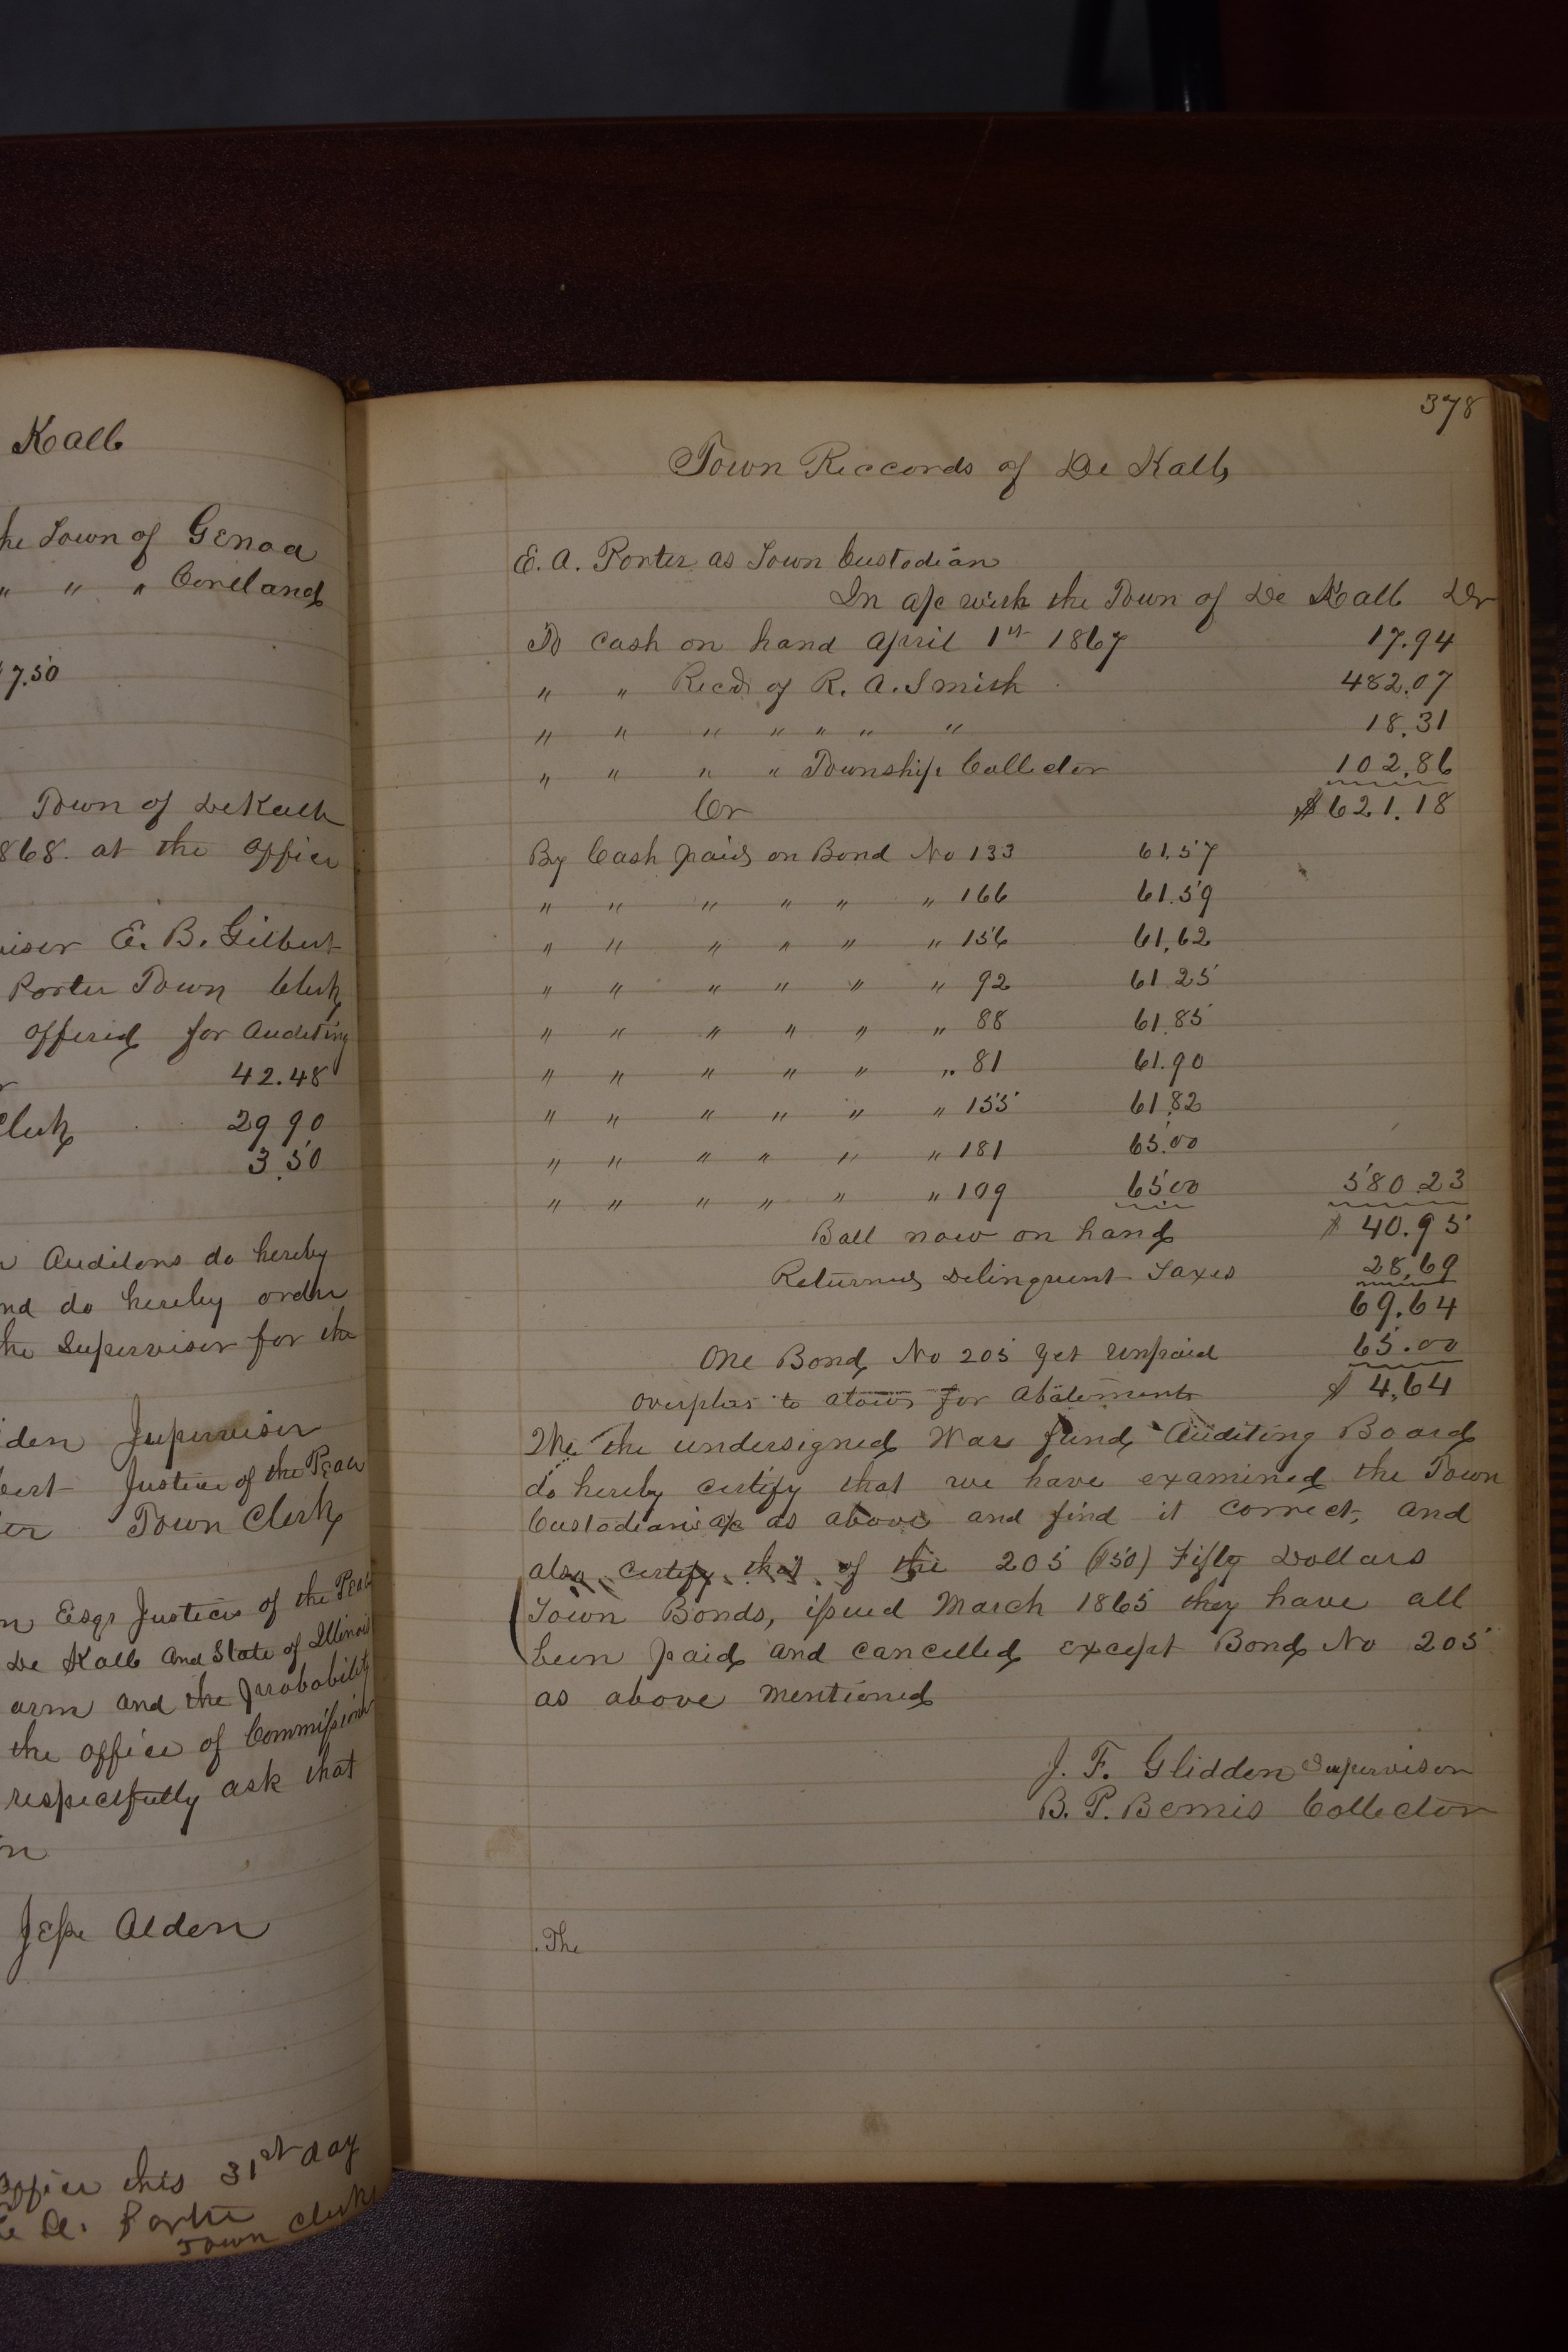 Kalb
he Town of Genoa
" " " Cortland
7.50
Town of DeKalb
868. at the office
viser E. B. Gilbert
Porter Town Clerk
offered for Auditing
r 42.48
Clerk 29 90
3.50
n Auditors do hereby
nd do hereby order
he Supervisor for the
dden Supervisor
bert Justice of the Peace
ter Town Clerk
n Esqr Justices of the Peace
De Kalb and State of Illinois
arm and the probability
the office of Commissioner
respectfully ask that
n
Jesse Alden
office this 31st day
E. A. Porter
Town Clerk
378
Town Reccords of De Kalb
E. A. Porter as Town Custodian
In a/c with the Town of De Kalb Dr
To Cash on hand April 1st 1867 17.94
" " Recd of R. A. Smith 482.07
" " " " " " " 18.31
" " " " Township Collector 102.86
Cr $621.18
By Cash paid on Bond No 133 61.57
" " " " " " 166 61.59
" " " " " " 156 61.62
" " " " " " 92 61 25
" " " " " " 88 61.85
" " " " " " 81 61.90
" " " " " " 155 61.82
" " " " " " 181 65.00
" " " " " " 109 65 00 580.23
Ball now on hand $ 40.95
Returned Delinquent Taxes 28.69
69.64
One Bond No 205 yet unpaid 65.00
overplus to atown for Abatements $ 4.64
We the undersigned War fund Auditing Board
do hereby certify that we have examined the Town
Custodians a/c as above and find it correct, and
also certify that of the 205 ($50) Fifty Dollars
Town Bonds, issued March 1865 they have all
been paid and cancelled except Bond No 205
as above mentioned
J. F. Glidden Supervisor
B. P. Bemis Collector
The